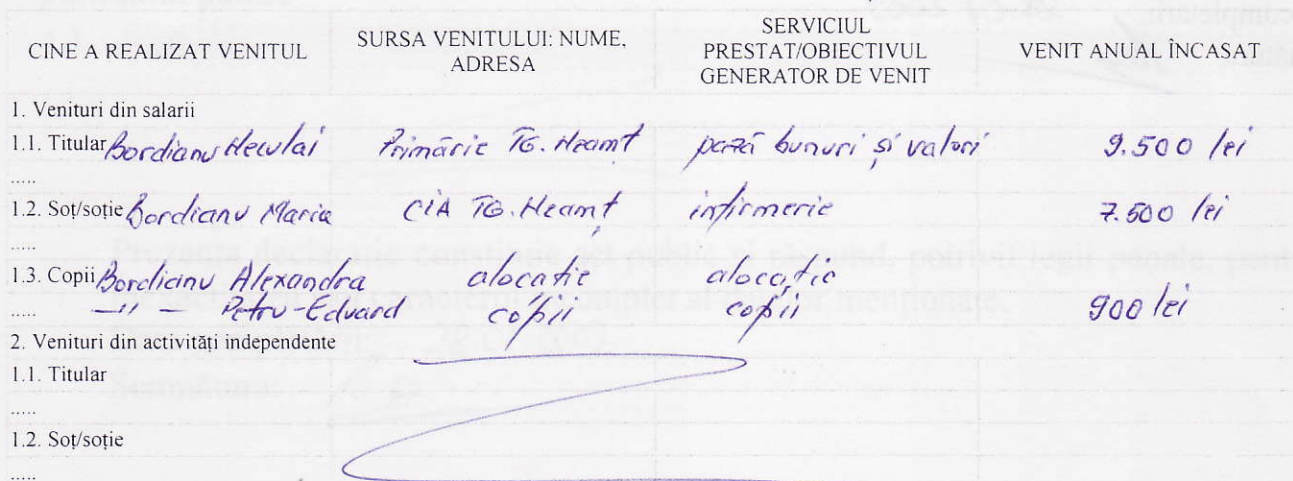 completării.
CINE A REALIZAT VENITUL SURSA VENITULUI: NUME, ADRESA SERVICIUL PRESTAT/OBIECTIVUL GENERATOR DE VENIT VENIT ANUAL ÎNCASAT
1. Venituri din salarii
1.1. Titular Bordianu Neculai Primărie TG. Neamț pază bunuri și valori 9.500 lei
.....
1.2. Soț/soție Bordianu Maria CIA TG. Neamț infirmerie 7.500 lei
.....
1.3. Copii Bordianu Alexandra alocație alocație
..... —11— Petru-Eduard copii copii 900 lei
2. Venituri din activități independente
1.1. Titular
.....
1.2. Soț/soție
.....